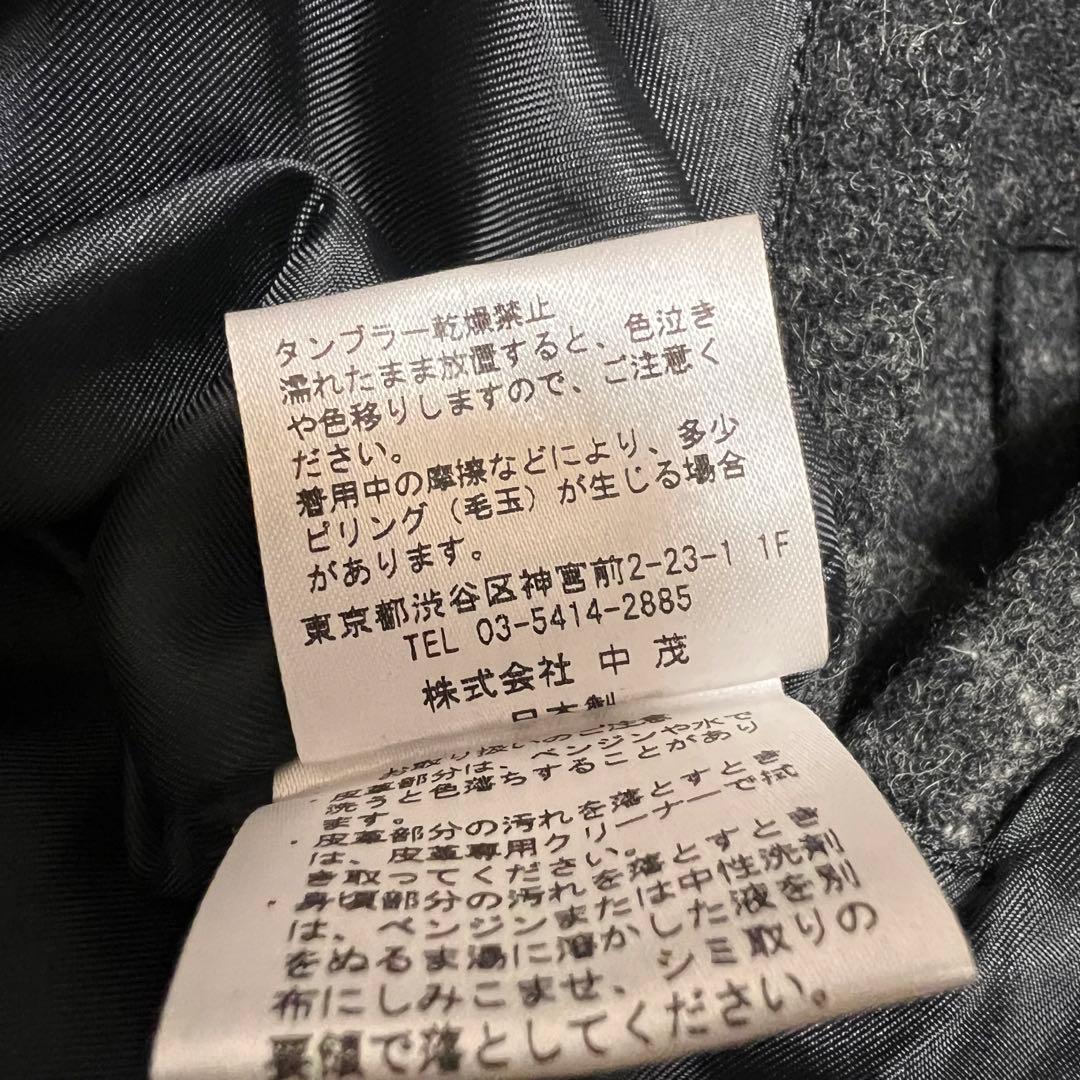 タンブラー乾燥禁止
濡れたまま放置すると、色泣き
や色移りしますので、ご注意く
ださい。
着用中の摩擦などにより、多少
ピリング（毛玉）が生じる場合
があります。
東京都渋谷区神宮前2-23-1 1F
TEL 03-5414-2885
株式会社 中 茂
日本製
お取り扱いのご注意
・皮革部分は、ベンジンや水で
洗うと色落ちすることがあり
ます。
・皮革部分の汚れを落とすとき
は、皮革専用クリーナーで拭
き取ってください。
・身頃部分の汚れを落とすとき
は、ベンジンまたは中性洗剤
をぬるま湯に溶かした液を別
布にしみこませ、シミ取りの
要領で落としてください。